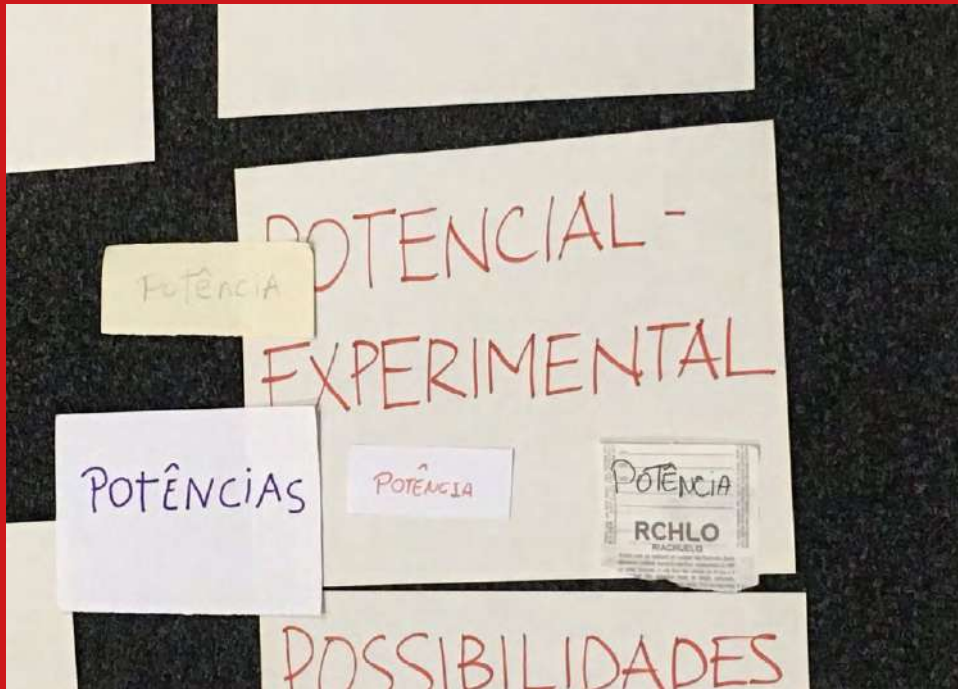 POTENCIAL-
Potência
EXPERIMENTAL
POTÊNCIAS
POTÊNCIA
POTÊNCIA
RCHLO
RIACHUELO
POSSIBILIDADES